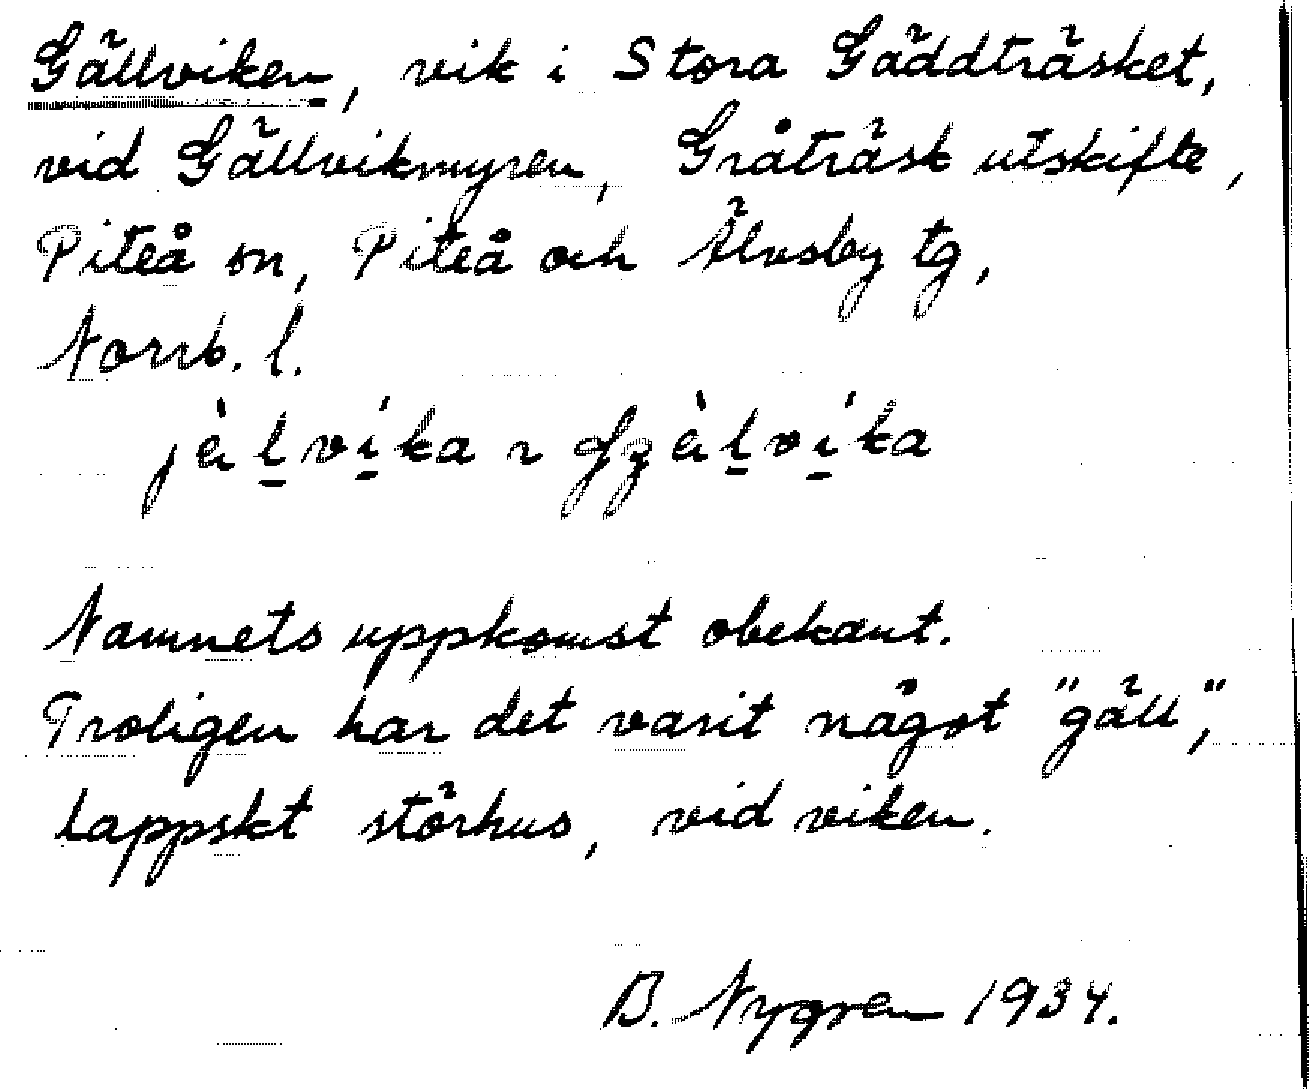 Gällviken, vik i Stora Gäddträsket,
vid Gällvikmyren, Gråträsk utskifte,
Piteå sn, Piteå och Älvsby tg,
Norrb. l.
jèḻvi̱ka ~ dʒèḻvi̱ka
Namnets uppkomst obekant.
Troligen har det varit något "gäll",
lappskt störhus, vid viken.
B. Nygren 1934.